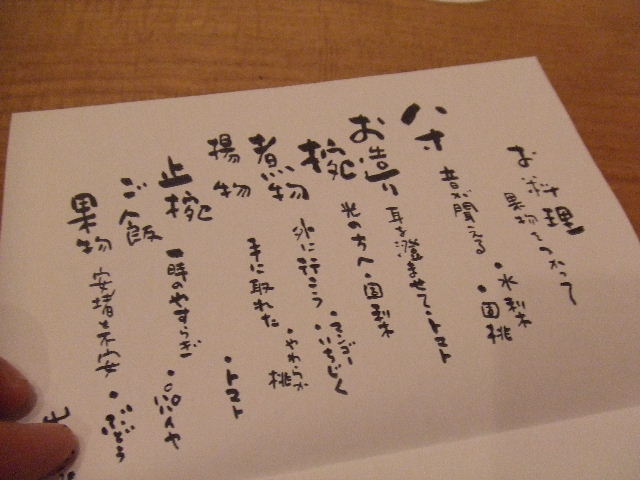 お料理
果物をつかって
八寸
音が聞える
・水梨
・固桃
お造り
耳を澄ませて・トマト
椀
光の方へ・固梨
煮物
外に行こう
・マンゴー
・いちじく
揚物
手に取れた
・やわらか桃
止椀
ご飯
一時のやすらぎ
・トマト
・パパイヤ
果物
安堵と不安
・ぶどう